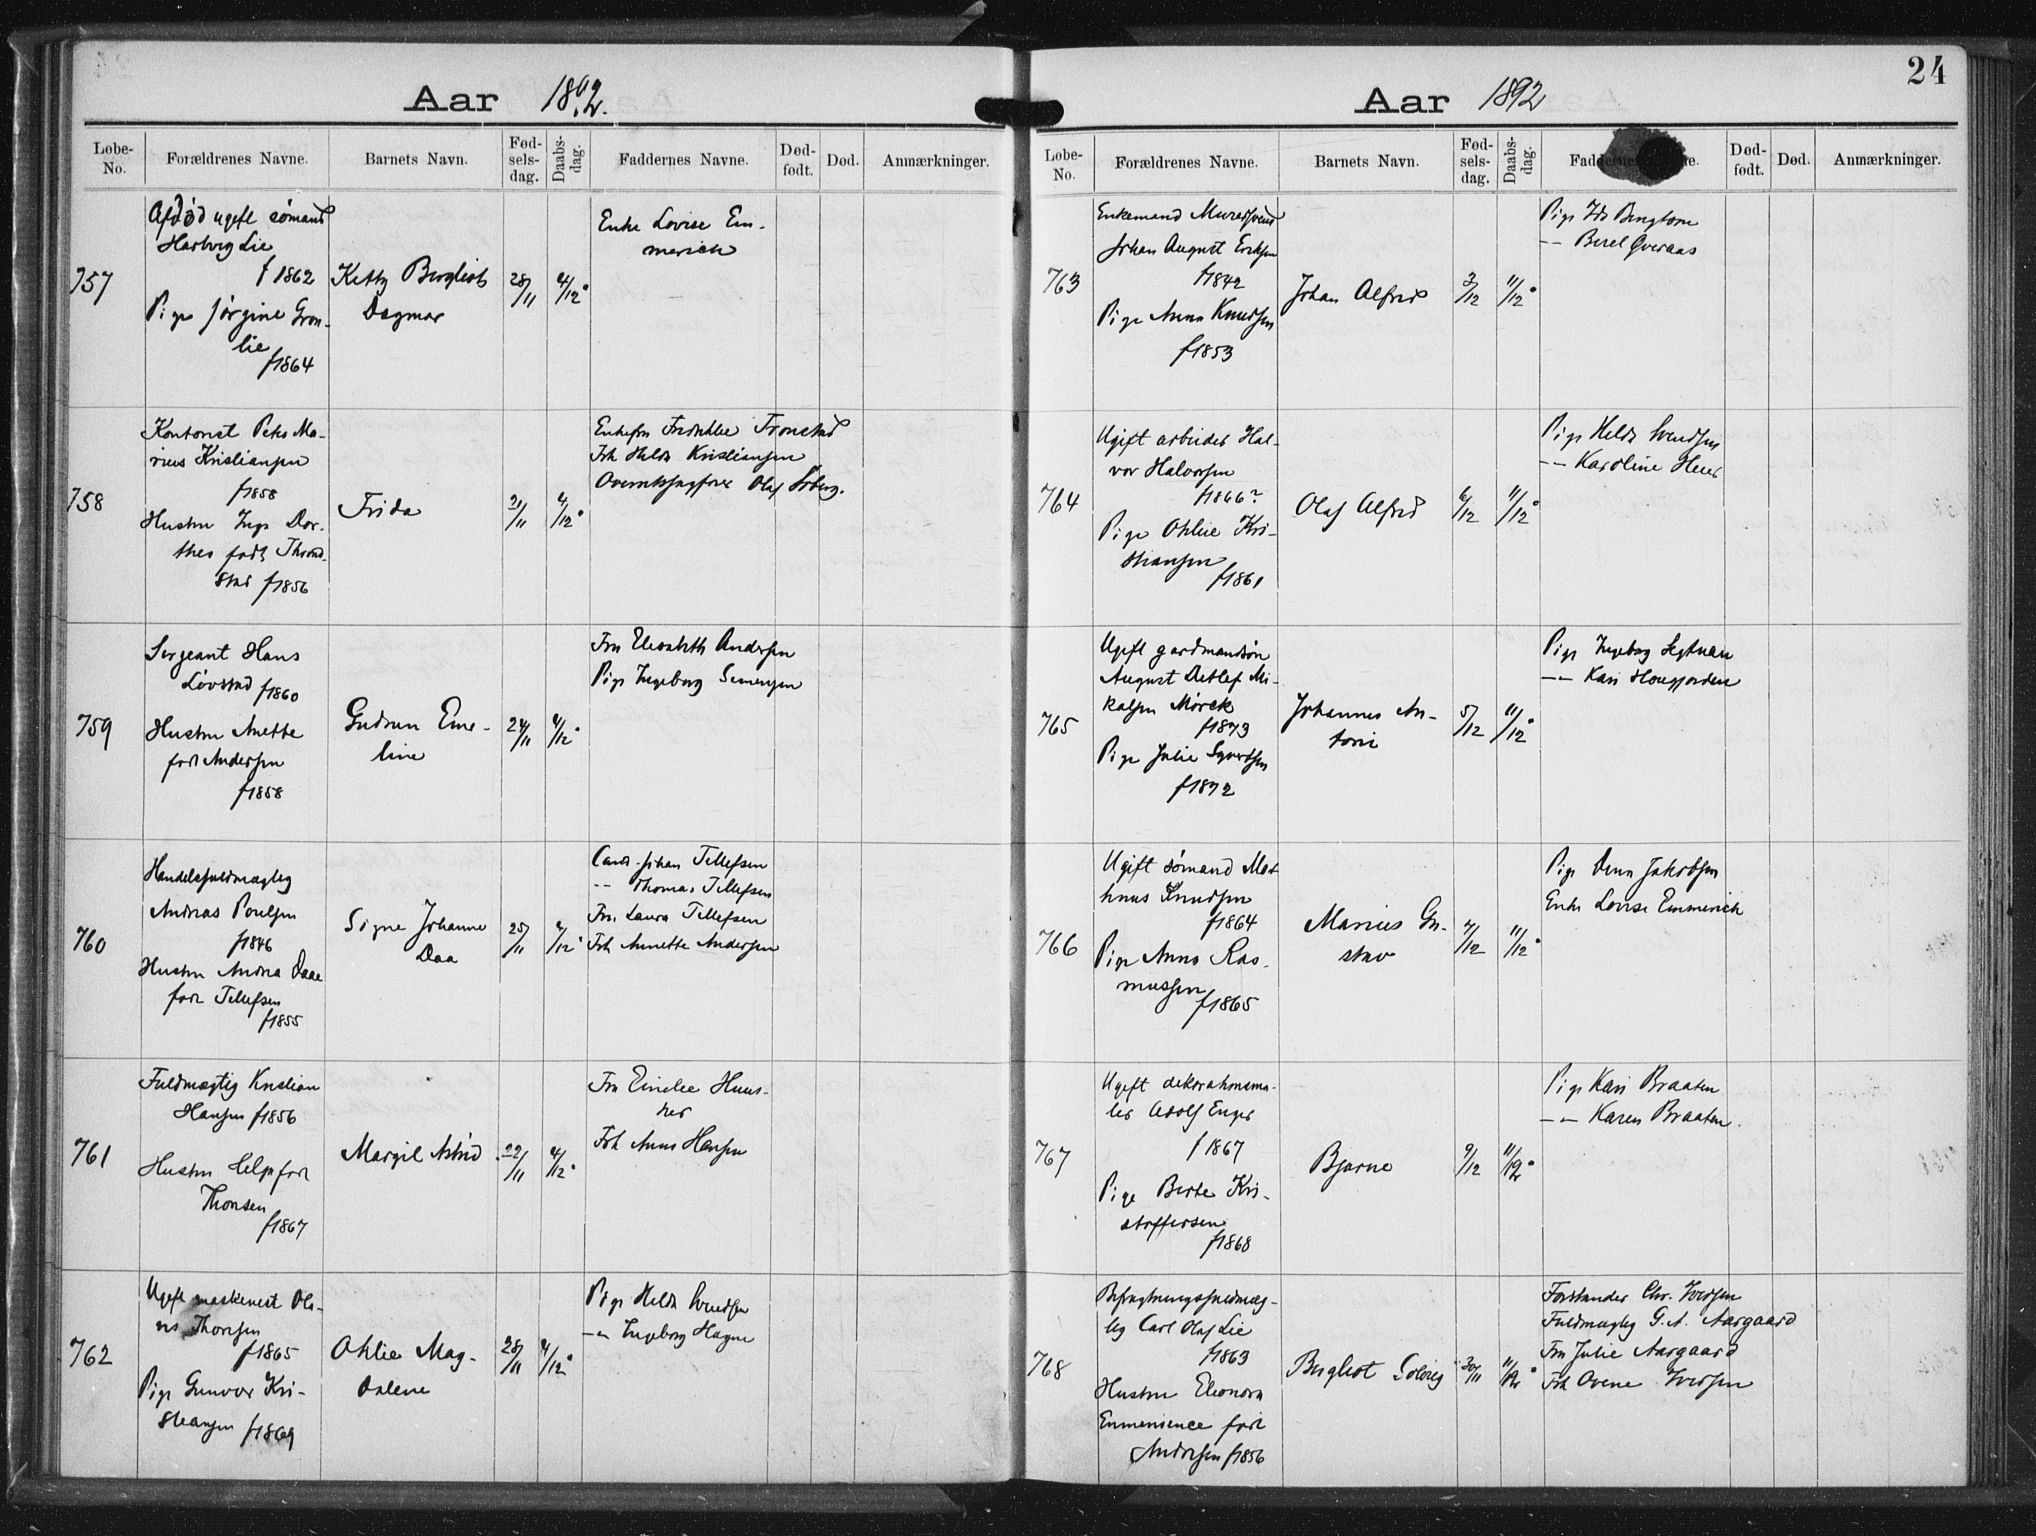 Aar 1892.
Løbe-No. Forældrenes Navne. Barnets Navn. Fød-sels-dag. Daabs-dag. Faddernes Navne. Død-født. Død. Anmærkninger.
757
Afdød ugift sømand
Hartvig Lie
f 1862
Pige Jørgine Grøn-
lie
f1864
Ketty Bergliot
Dagmar
28/11
4/12
Enke Lovise Em-
merich
758
Kontorist Peter Ma-
rius Kristiansen
f1858
Hustru Inga Dor-
thea født Thron-
stad f1856
Frida
21/11
4/12
Enkefru Fredrikke Tronstad
Frk Hilda Kristiansen
Overretssagfører Olaf
759
Sergeant Hans
Løvstad f1860
Hustru Anette
født Andersen
f1858
Gudrun Eme-
line
24/11
4/12
Fru Elisabeth Andersen
Pige Ingeborg Simensen
760
Handelsfuldmægtig
Andreas Poulsen
f1846
Hustru Andrea Daae
født Tellefsen
f1855
Signe Johanne
Daa
25/11
4/12
Cand. Johan Tellefsen
-- Thomas Tellefsen
Fru Laura Tellefsen
Frk Annette Andersen
761
Fuldmægtig Kristian
Hansen f1856
Hustru Helga født
Thorsen
f1867
Margit Astrid
22/11
4/12
Fru Emelie
Frk Anna Hansen
762
Ugift maskinist Ole-
us Thorsen
f1865
Pige Gunvor Kri-
stiansen f1869
Othlie Mag-
dalene
28/11
4/12
Pige Hilda Svendsen
-- Ingeborg Hagne
Aar 1892
24
Løbe-No. Forældrenes Navne. Barnets Navn. Fød-sels-dag. Daabs-dag. Faddernes Navne. Død-født. Død. Anmærkninger.
763
Enkemand Muresvend
Johan August Eriksen
f1842
Pige Anna Knudsen
f1853
Johan Alfred
3/12
11/12
Pige Ida Bengtson
-- Beret Øveraas
764
Ugift arbeider Hal-
vor Halvorsen
f1866?
Pige Othlie Kri-
stiansen
f1861
Olaf Alfred
6/12
11/12
Pige Hilda Svendsen
-- Karoline Heier
765
Ugift gardmandsøn
August Detlef Mi-
kalsen Mørck
f1873
Pige Julie Syvertsen
f1872
Johannes An-
toni
5/12
11/12
Pige Ingeborg
-- Kari
766
Ugift sømand Mat-
hæus Knudsen
f1864
Pige Anna Ras-
mussen
f1865
Marius Gu-
stav
7/12
11/12
Pige Jakobsen
Enke Lovise Emmerich
767
Ugift dekorationsma-
ler Adolf Enger
f 1867
Pige Berte Kri-
stoffersen
f1868
Bjarne
9/12
11/12
Pige Kari Braaten
-- Karen Braaten.
768
Befragtningsfuldmæg-
tig Carl Olaf Lie
f1863
Hustru Eleonora
født
Andersen f1856
Bergliot Solveig
30/11
11/12
Forstander Chr. Iversen
Fuldmægtig G. A. Aargaard
Fru Julie Aargaard
Frk Ovene Iversen